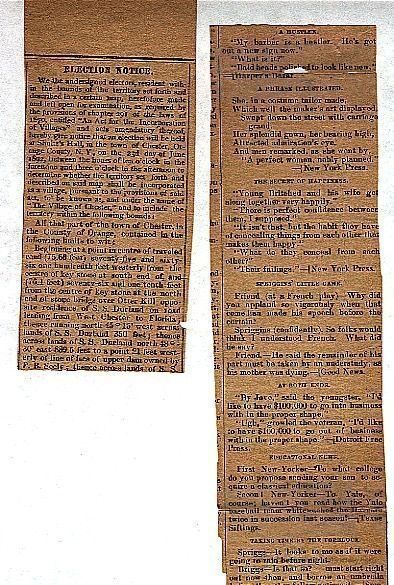 ELECTION NOTICE.
We the undersigned electors, resident with
in the bounds of the territory set forth and
described in a certain map, heretofore made
and left open for examination, as required by
the provisions of chapter 291 of the laws of
1870, entitled "An Act for the Incorporation
of Villages" and acts amendatory thereof,
hereby give notice that an election will be held
at Hall, in the town of Chester, Or-
ange County, N. Y., on the day of June
1892, between the hours of ten o'clock in the
forenoon and three o'clock in the afternoon to
determine whether the territory set forth and
described on said map shall be incorporated
as a village, pursuant to the provisions of said
act, to be known as, and under the name of
"The Village of Chester," and to include the
territory within the following bounds:
All that part of the town of Chester, in
the County of Orange, contained in the
following limits to wit:
Beginning at a point in centre of traveled
road (75.66 feet) seventy-five and sixty-
six one hundredth feet westerly from the
centre of key stone at south end of and
feet) seventy-six and one tenth feet
from the centre of key stone at the north
end of stone bridge over Otter Kill oppo-
site residence of S. S. Durland on road
leading from West Chester to Florida;
thence running north 45° 15' west across
lands of S. S. Durland 350 feet; thence
across lands of S. S. Durland north
east feet to a point 21 feet west-
erly of line of face of upper dam owned by
F. B. Seely, thence across lands of S. S.
A HUSTLER.
"My barber is a hustler. He's got
out a new sign now."
"What is it?"
"'Bald heads polished to look like new.'"
—Harper's Bazar.
A PHRASE ILLUSTRATED.
She, in a costume tailor made,
Which well the maker's art displayed,
Swept down the street with carriage
grand;
Her splendid gown, her bearing high,
Attracted admiration's eye,
And men remarked, as she went by,
"A perfect woman, nobly planned."
—New York Press.
THE SECRET OF HAPPINESS.
"Young Britished and his wife get
along together very happily."
"There is perfect confidence between
them, I supposed."
"It isn't that; but the habit they have
of concealing things from each other that
makes them happy."
"What do they conceal from each
other?"
"Their failings."—[New York Press.
SPRIGGINS' GUESSING.
Friend (at a French play)—Why did
you applaud so vigorously when that
comedian made his speech before the
curtain?
Spriggins (confidently)—So folks would
think I understood French. What did
he say?
Friend—He said the remainder of his
part must be taken by an understudy, as
his mother was dying.—[Good News.
AT BOTH ENDS.
"By Jove," said the youngster, "I'd
like to have $100,000 to go into business
with in the proper shape."
"Ugh," growled the veteran, "I'd like
to have $100,000 to go out of business
with in the proper shape."—[Detroit Free
Press.
EDUCATIONAL NEWS.
First New-Yorker—To what college
do you propose sending your son to se-
cure a classical education?
Second New-Yorker—To Yale, of
course; haven't you read how the Yale
baseball team whitewashed the
twice in succession last season?—[Texas
Siftings.
TAKING TIME BY THE FORELOCK.
Spriggs—It looks to me as if it were
going to rain before night.
Briggs—Is that so? I must start right
out now then, and borrow an umbrella